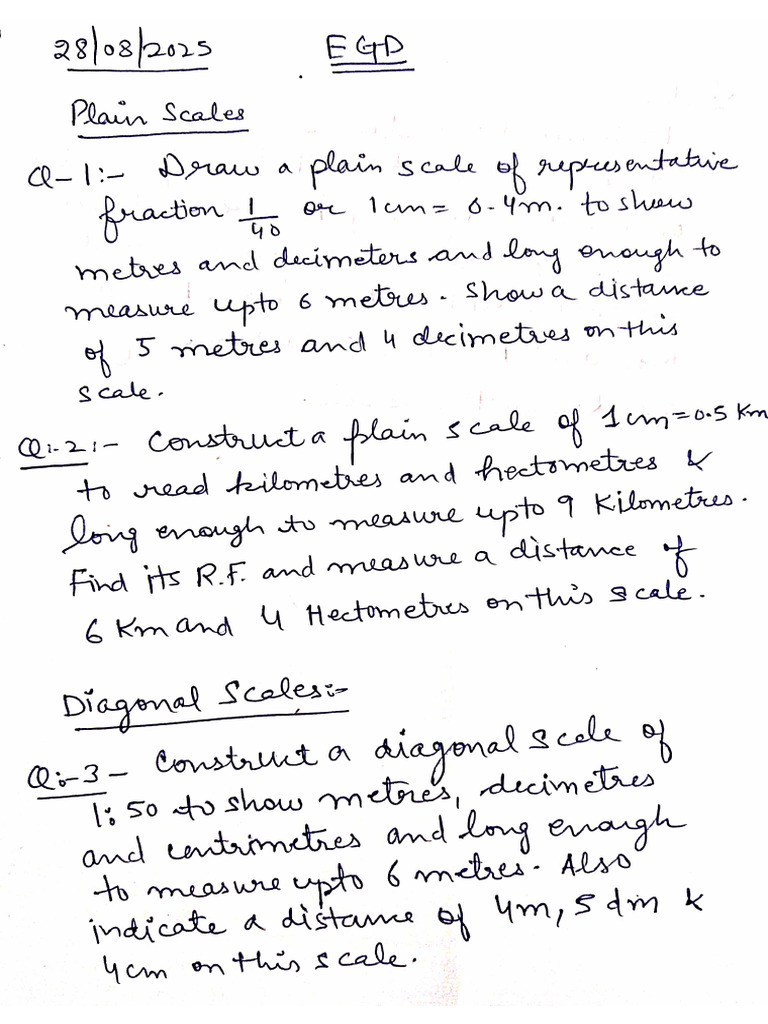 28/08/2025 EGD
Plain Scales
Q-1:- Draw a plain scale of representative
fraction 1/40 or 1cm = 0.4m. to show
metres and decimeters and long enough to
measure upto 6 metres. Show a distance
of 5 metres and 4 decimetres on this
scale.
Q:-2:- Construct a plain scale of 1cm=0.5 Km
to read kilometres and hectometres &
long enough to measure upto 9 Kilometres.
Find its R.F. and measure a distance of
6 Km and 4 Hectometres on this scale.
Diagonal Scales:-
Q:-3- Construct a diagonal scale of
1:50 to show metres, decimetres
and centrimetres and long enough
to measure upto 6 metres. Also
indicate a distance of 4m, 5 dm &
4cm on this scale.